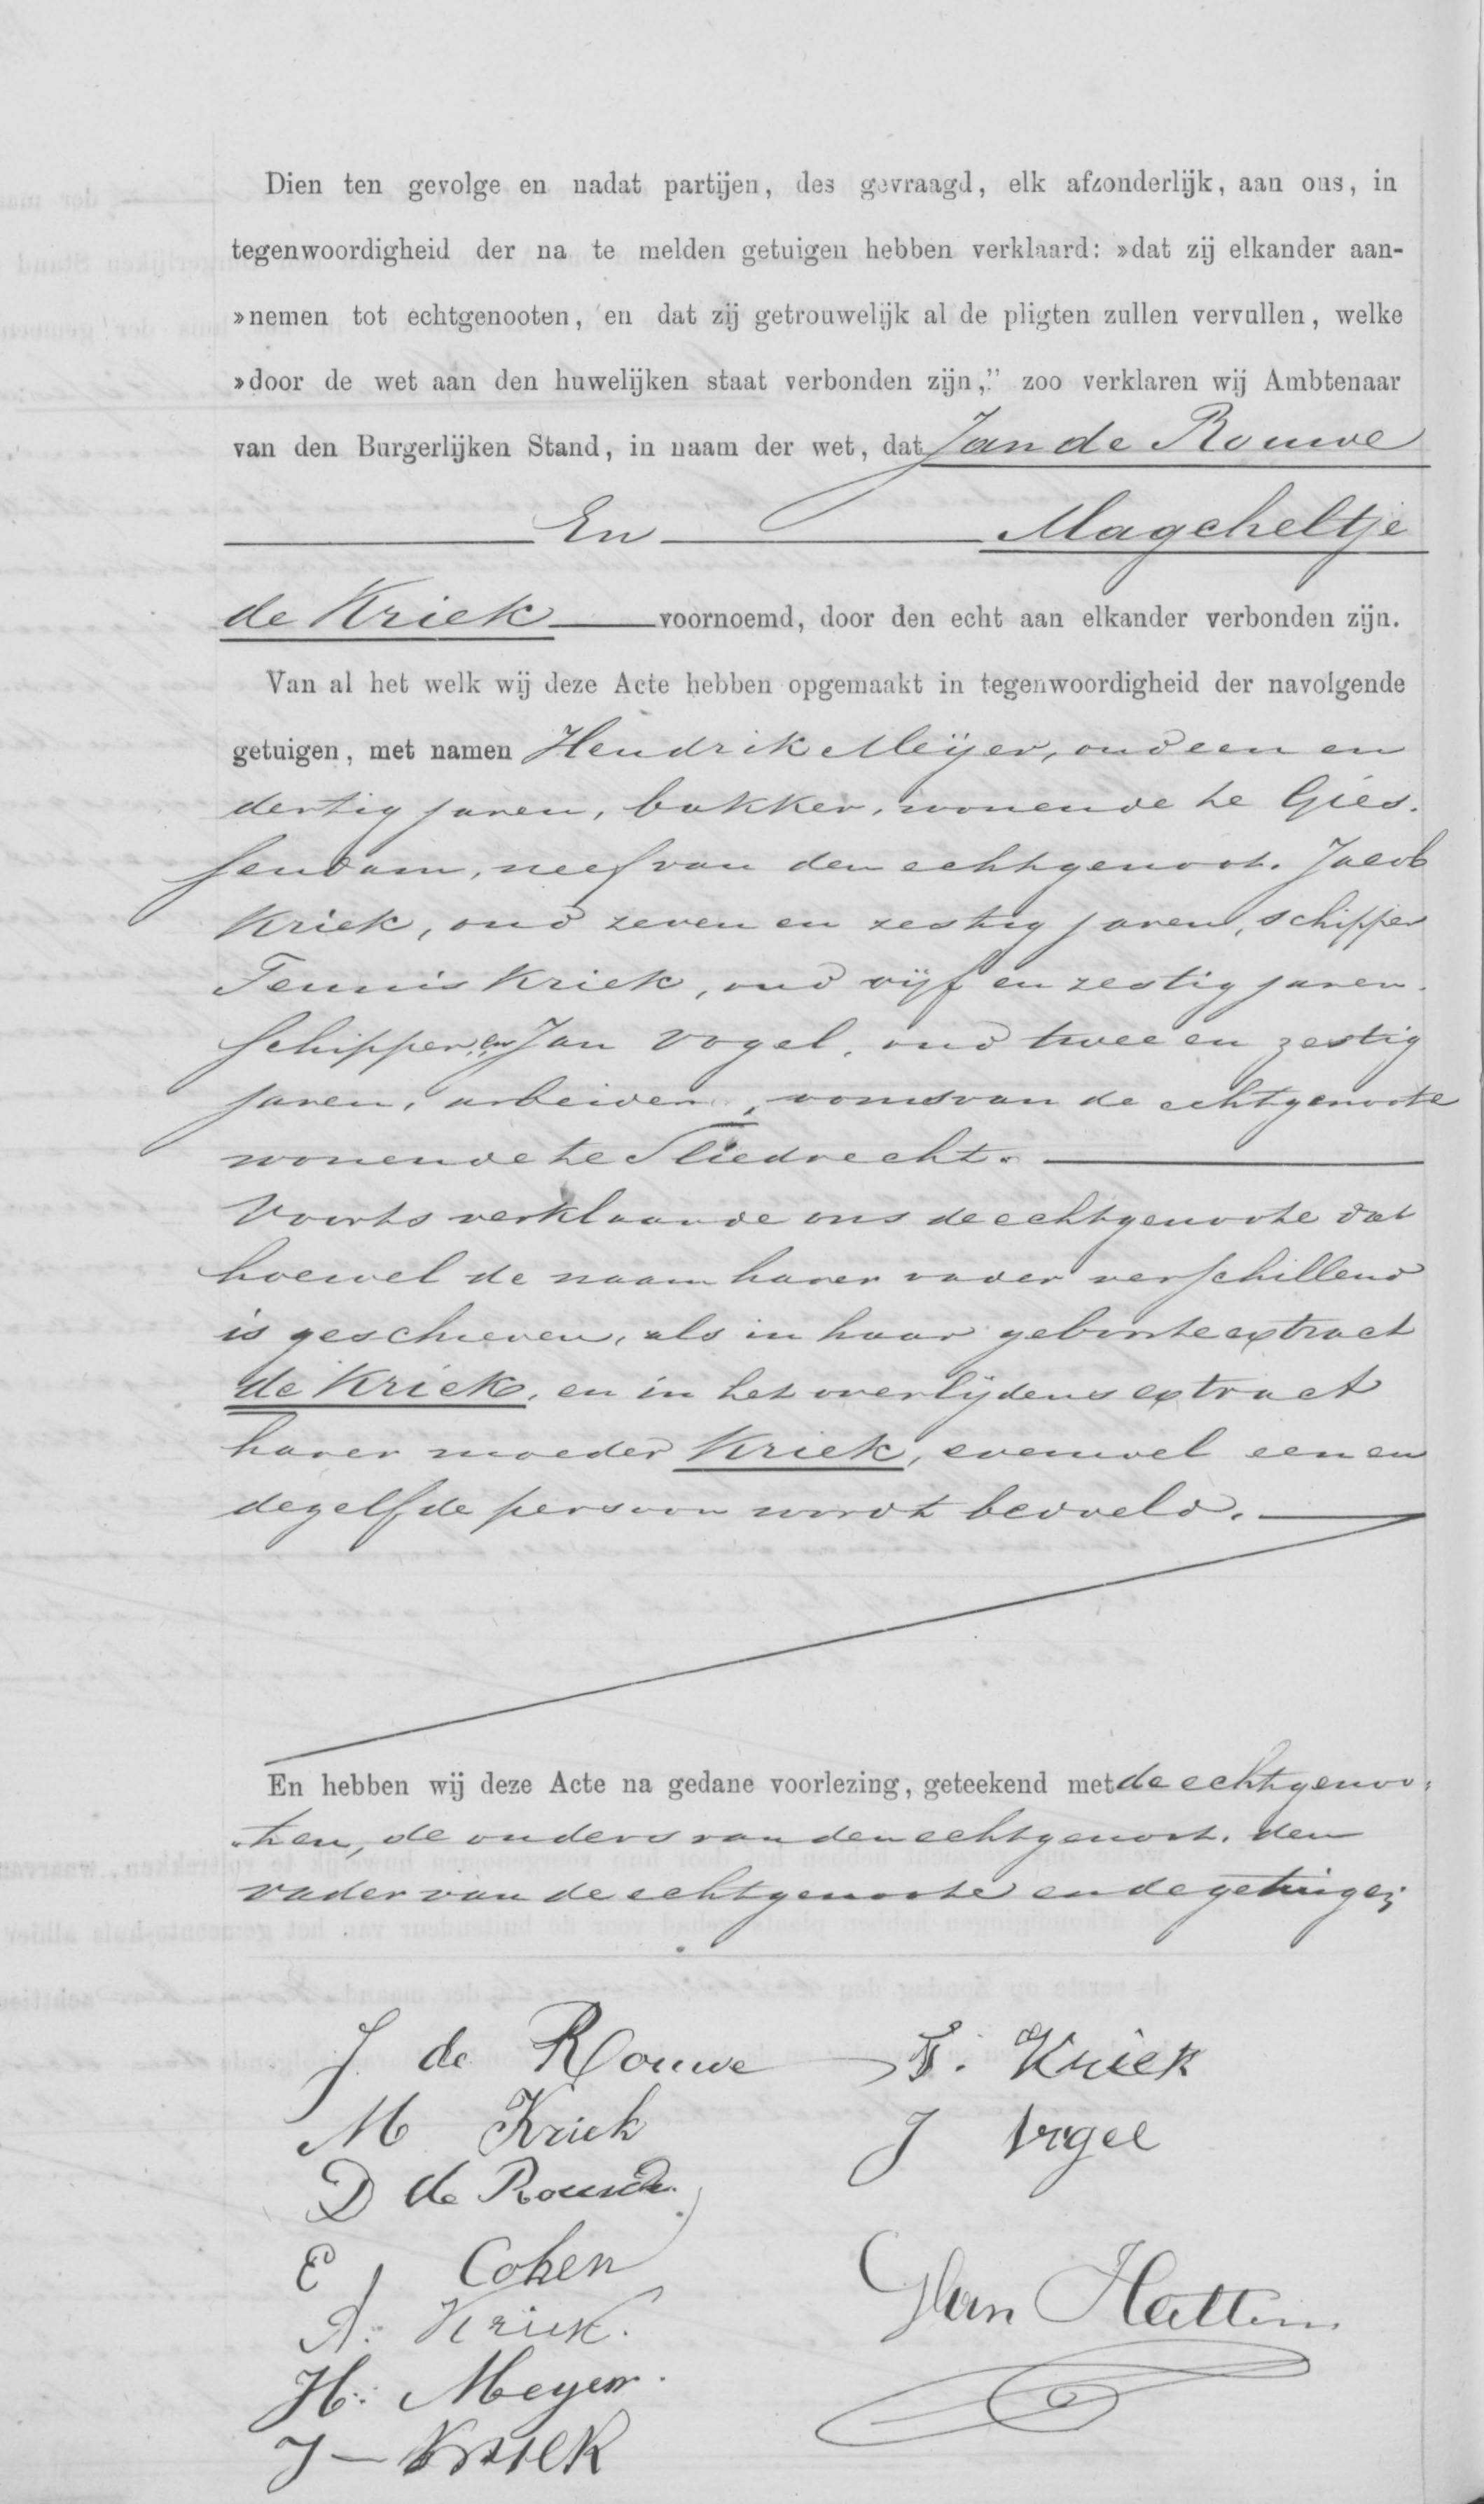 Dien ten gevolge en nadat partijen, des gevraagd, elk afzonderlijk, aan ons, in
tegenwoordigheid der na te melden getuigen hebben verklaard: »dat zij elkander aan-
»nemen tot echtgenooten, en dat zij getrouwelijk al de pligten zullen vervullen, welke
»door de wet aan den huwelijken staat verbonden zijn," zoo verklaren wij Ambtenaar
van den Burgerlijken Stand, in naam der wet, dat Jan de Rouwe
En Magcheltje
de Kriek voornoemd, door den echt aan elkander verbonden zijn.
Van al het welk wij deze Acte hebben opgemaakt in tegenwoordigheid der navolgende
getuigen, met namen Hendrik Meijer, oud een en
dertig jaren, bakker, wonende te Gies-
sendam, neef van den echtgenoot. Jacob
Kriek, oud zeven en zestig jaren, schipper
Teunis Kriek, oud vijf en zestig jaren.
schipper, en Jan Vogel, oud twee en zestig
jaren, arbeider, ooms van de echtgenoote
wonende te Sliedrecht.
Voorts verklaarde ons de echtgenoote dat
hoewel de naam harer vader verschillend
is geschreven, als in haar geboorteextract
de Kriek, en in het overlijdensextract
harer moeder Kriek, evenwel een en
dezelfde persoon wordt bedoeld.
En hebben wij deze Acte na gedane voorlezing, geteekend met de echtgenoo-
ten, de ouders van den echtgenoot, den
vader van de echtgenoote en de getuigen;
J de Rouwe
M Kriek
D de Rouwe
E Cohen
A. Kriek.
H. Meyer.
J - Kriek
T. Kriek
J Vogel
van Hatten